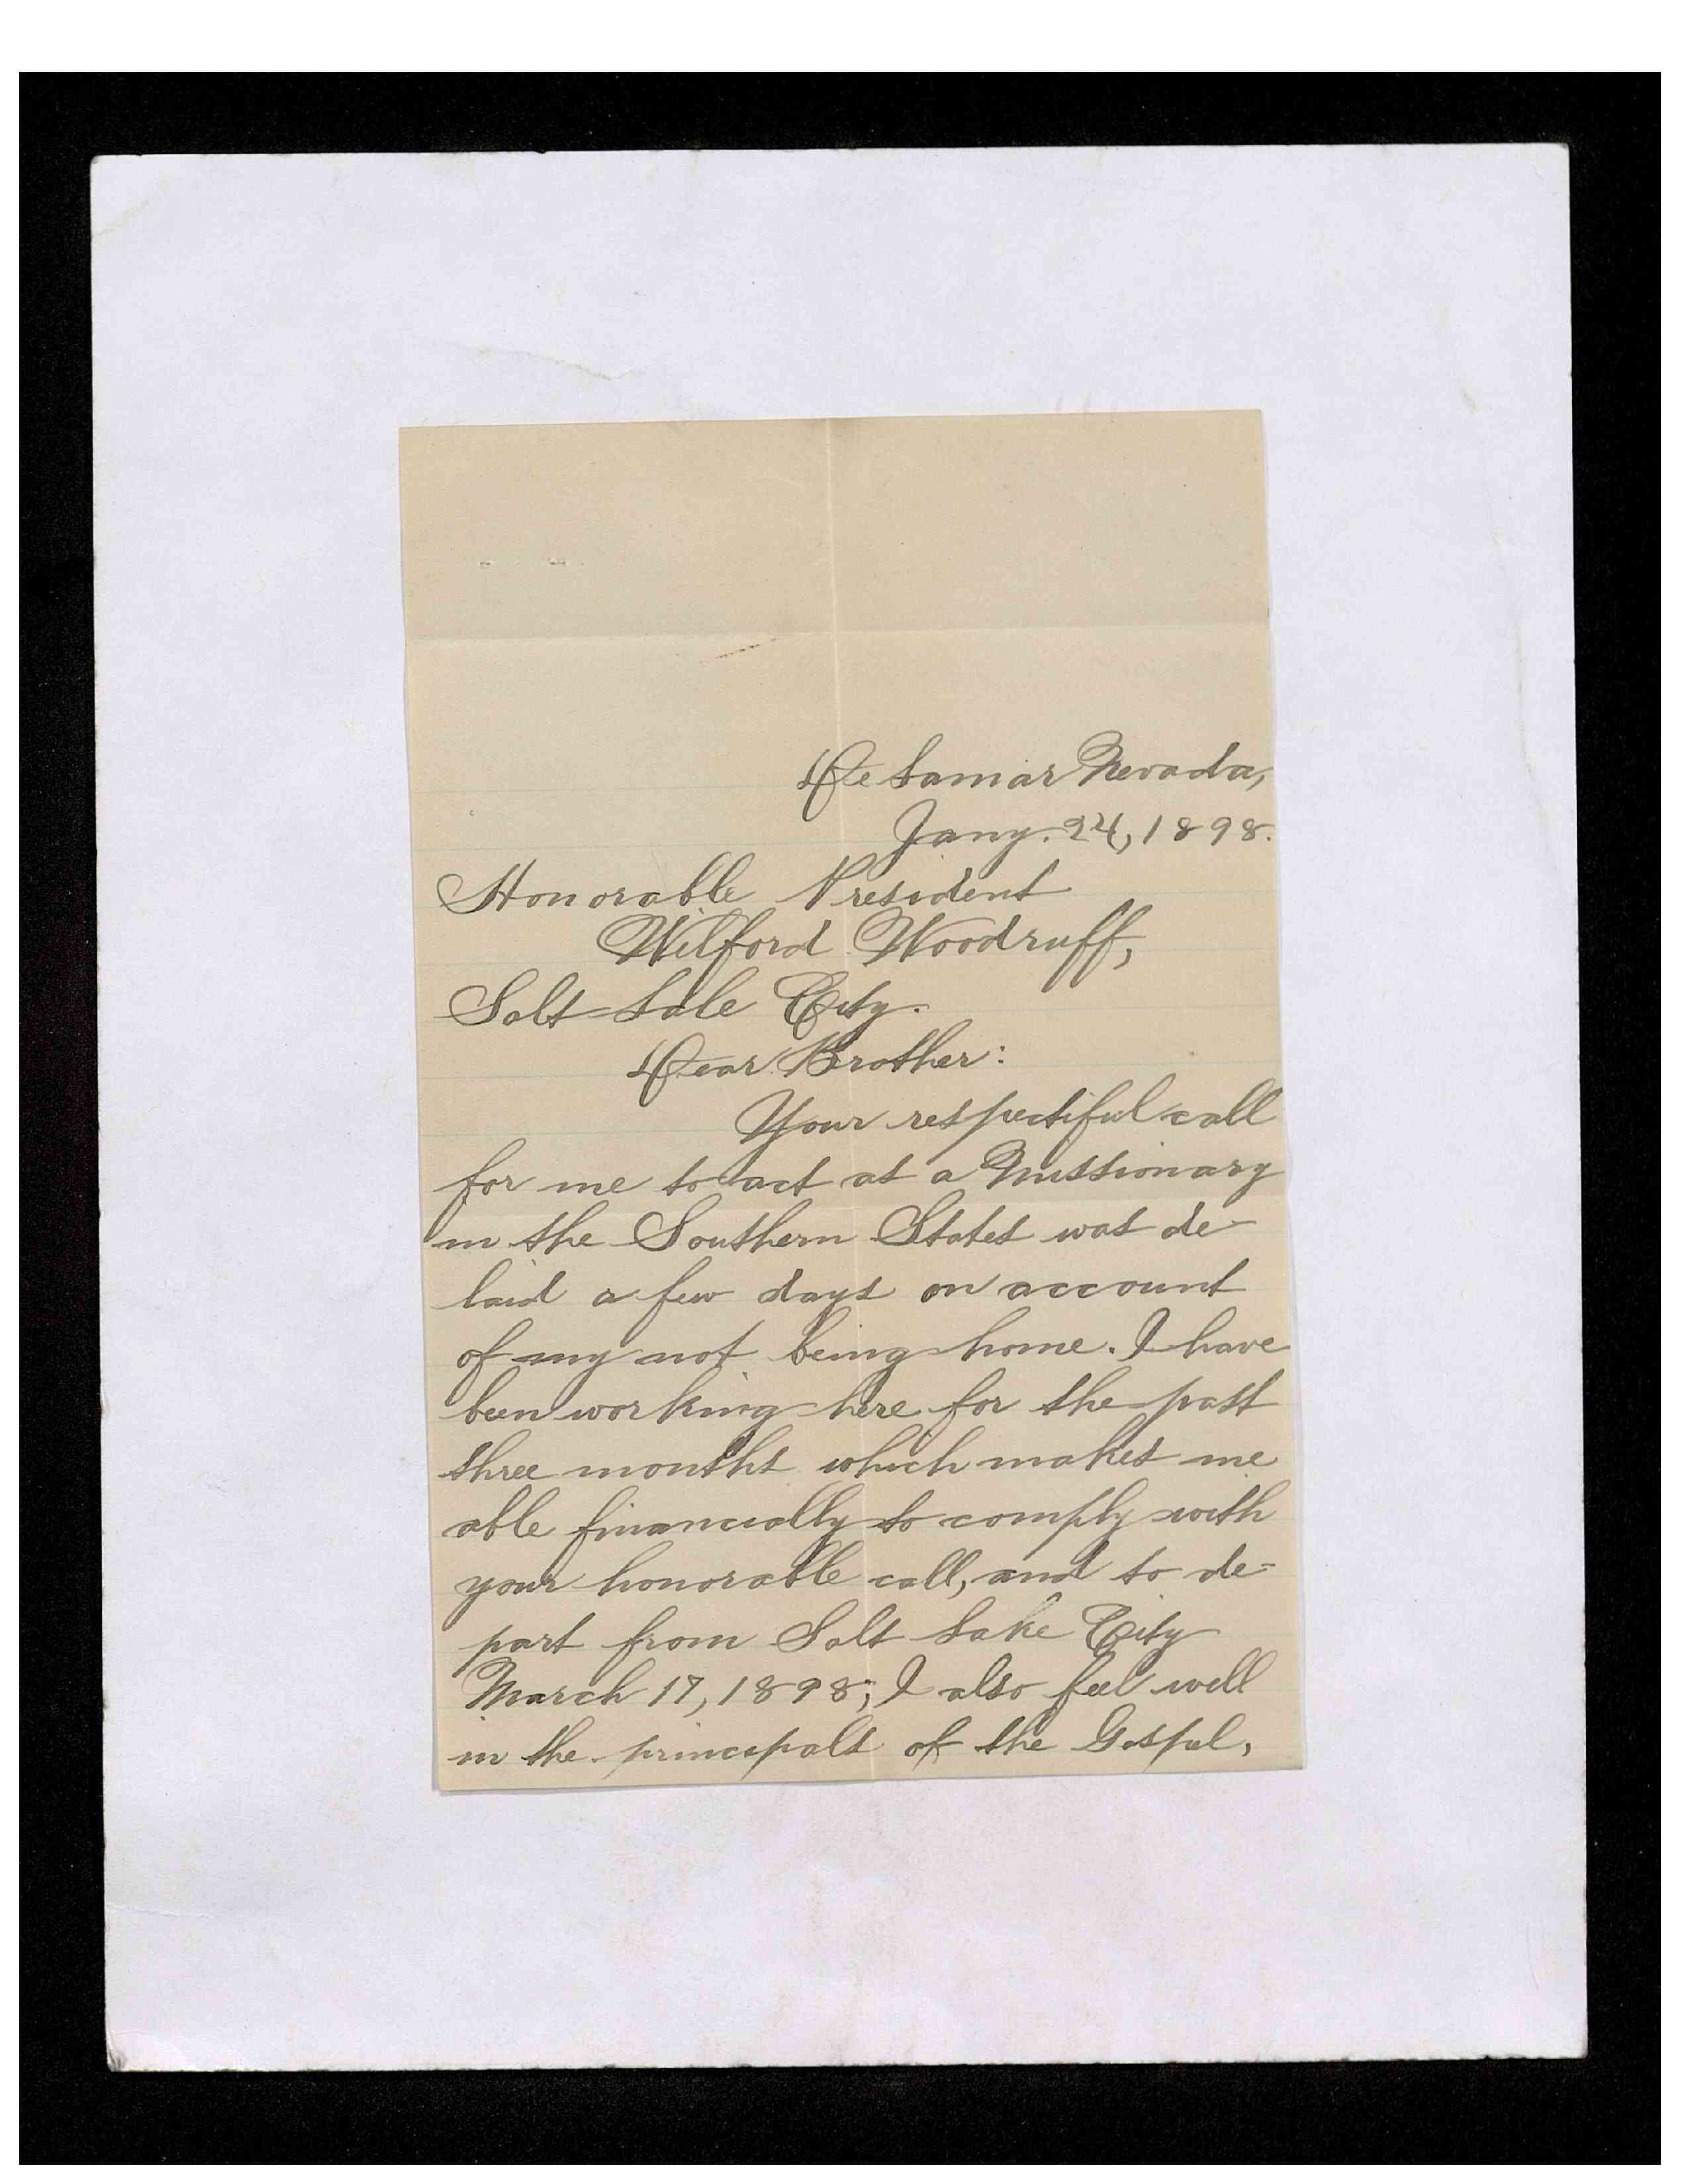 De Lamar Nevada,
Jany. 24, 1898.
Honorable President
Wilford Woodruff,
Salt Lale City.
Dear Brother:
Your respectiful call
for me to act as a Missionary
in the Southern States was de-
laid a few days on account
of my not being home. I have
been working here for the past
three months which makes me
able financially to comply with
your honorable call, and to de-
part from Salt Lake City
March 17, 1898; I also feel well
in the principals of the Gospel,